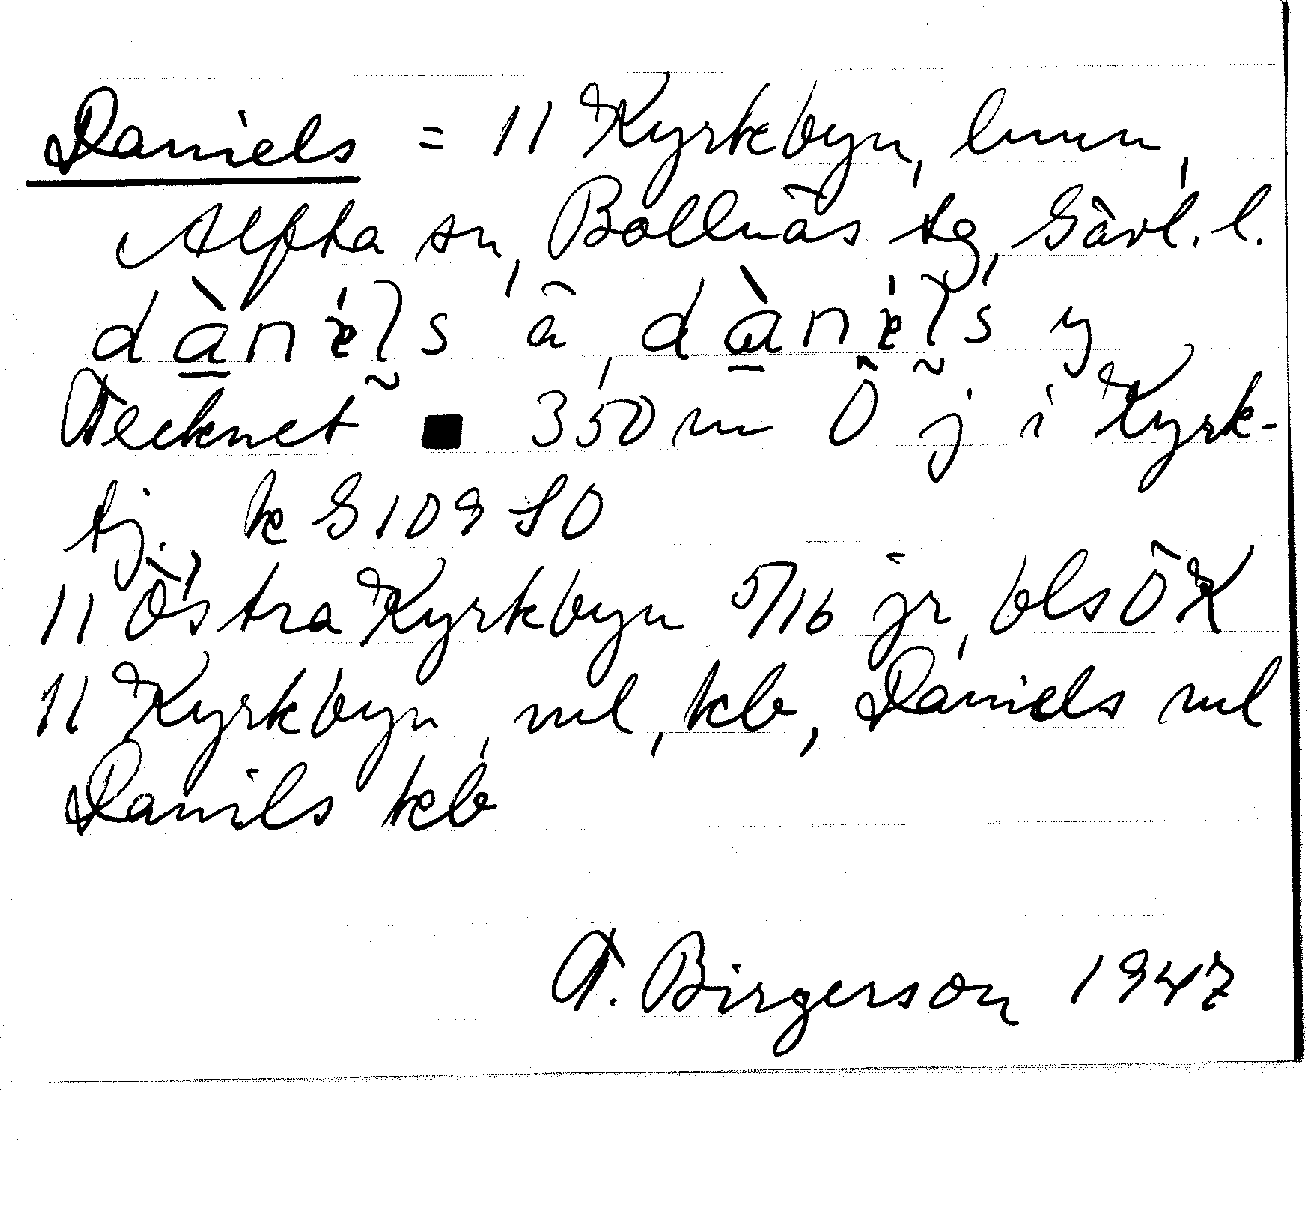 Daniels = 11 Kyrkbyn, hmn,
Alfta sn, Bollnäs tg, Gävl. l.
dànels ä, dànels y
Tecknet ■ 350 m Ö j i Kyrk-
tj., k G 109 SO
11 Östra Kyrkbyn 5/16 jr, bls ÖK
11 Kyrkbyn, ml, kb, Daniels ml
Danils kb
T. Birgerson 1947